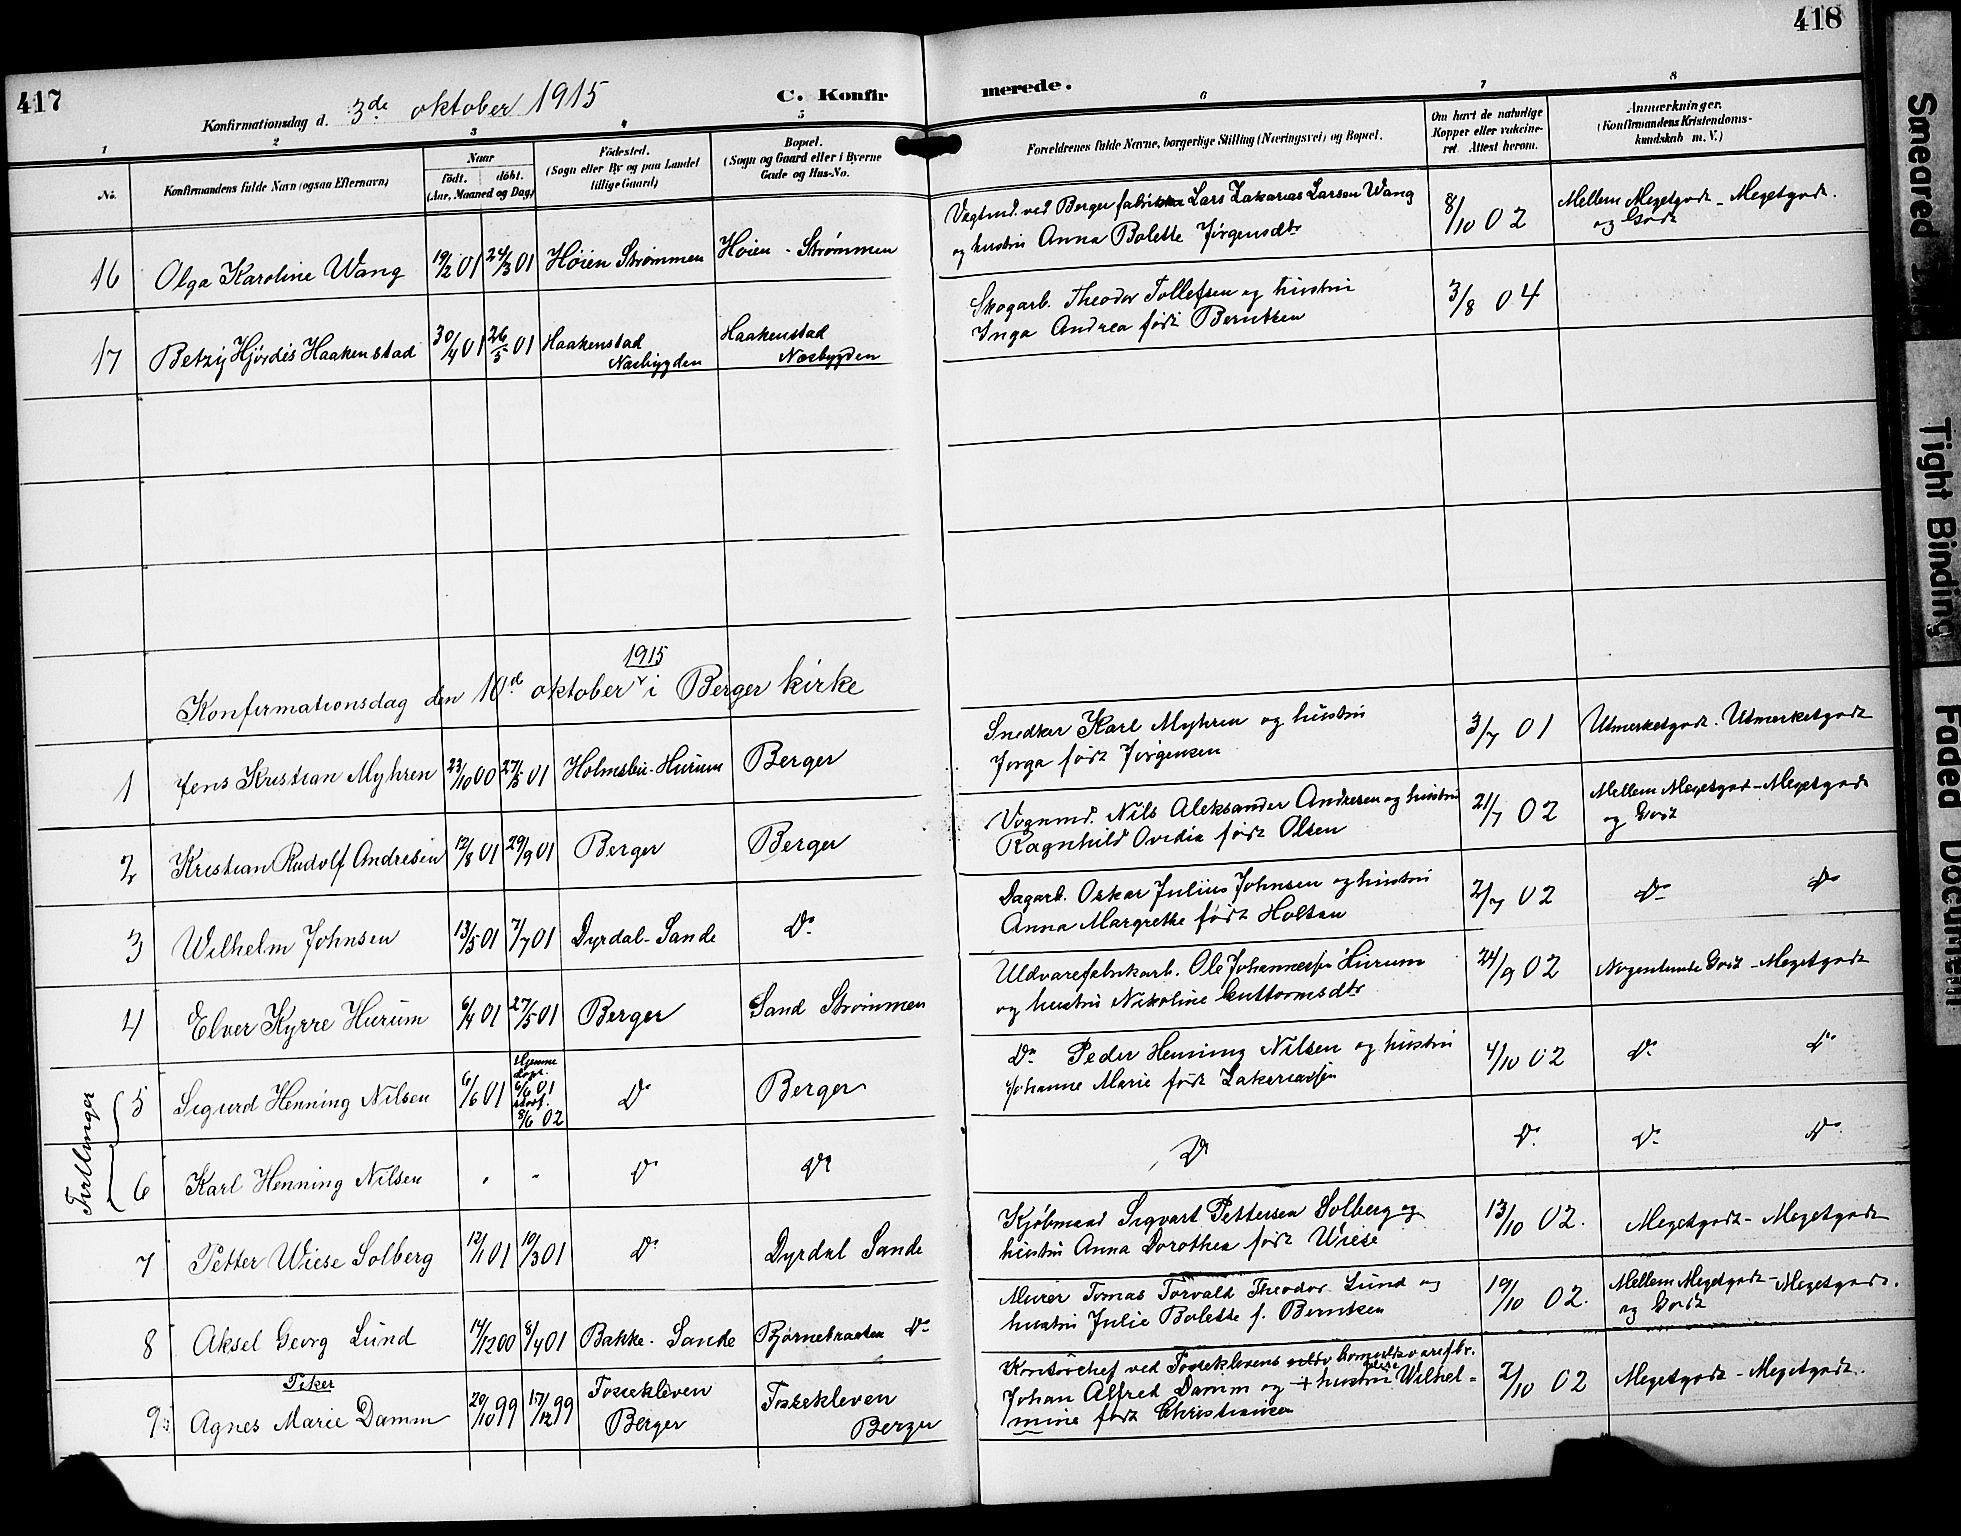 417
418
Konfirmationsdag d. 3de oktober 1915
C. Konfirmerede.
1 2 3 4 5 6 7 8
No.
Konfirmandens fulde Navn (ogsaa Efternavn)
Naar
født. døbt.
(Aar, Maaned og Dag)
Fødested.
(Sogn eller By og paa Landet
tillige Gaard)
Bopæl.
(Sogn og Gaard eller i Byerne
Gade og Hus-No.
Forældrenes fulde Navne, borgerlige Stilling (Næringsvei) og Bopæl.
Om havt de naturlige
Kopper eller vakcine-
ret Attest herom.
Anmærkninger.
(Konfirmandens Kristendoms-
kundskab m. V.)
16 Olga Karoline Wang 19/2 01 24/3 01 Høien Strømmen Høien - Strømmen
Vagtmd. ved Berger fabrikker Lars Zakarias Larsen Wang
og hustru Anna Bolette Jørgensdtr
8/10 02
Mellem Megetgodt - Megetgodt.
og Godt
17 Betzy Hjørdis Haakenstad 30/4 01 26/5 01 Haakenstad
Nesbygden
Haakenstad
Nesbygden
Skogarb. Theodor Tollefsen og hustru
Inga Andrea født Berntsen
3/8 04
1915
Konfirmationsdag den 10d oktober i Berger kirke
1 Jens Kristian Myhren 23/10 00 27/5 01 Holmsbu-Hurum Berger
Snedker Karl Myhren og hustru
Jørga født Jørgensen
3/7 01
Utmerketgodt. Utmerketgodt
2 Kristian Rudolf Andresen 12/8 01 29/9 01 Berger Berger
Vognmd. Nils Aleksander Andresen og hustru
Ragnhild Ovidia født Olsen
21/7 02
Mellem Megetgodt - Megetgodt
og Godt
3 Wilhelm Johnsen 13/5 01 7/7 01 Dyrdal-Sande Do
Dagarb. Oskar Julius Johnsen og hustru
Anna Margrethe født Holtan
2/7 02
Do Do
4 Elver Kyrre Hurum 6/4 01 27/5 01 Berger Sand Strømmen
Uldvarefabrikarb. Ole Johannessen Hurum
og hustru Nikoline Guttormsdtr
24/9 02
Nogenlunde Godt - Megetgodt
Tvillinger
5 Sigurd Henning Nilsen 6/6 01 Hjemme
døpt.
6/6 01
stadf.
8/6 02
Do Berger
Do Peder Henning Nilsen og hustru
Johanne Marie født Zakariassen
4/10 02
Do Do
6 Karl Henning Nilsen - - Do Do
Do
Do Do Do
7 Petter Wiese Solberg 12/1 01 10/3 01 Do Dyrdal Sande
Kjøbmand Sigvart Pettersen Solberg og
hustru Anna Dorothea født Wiese
13/10 02.
Megetgodt - Megetgodt
8 Aksel Georg Lund 14/12 00 8/4 01 Bakke - Sande Bjørnebraaten Do
Murer Tomas Torvald Theodor Lund og
hustru Julie Bolette f. Berntsen
19/10 02.
Mellem Megetgodt - Megetgodt.
og Godt
Piker
9 Agnes Marie Damm 20/10 99 17/12 99 Fossekleven
Berger
Fossekleven
Berger
Kontorchef ved Fosseklevens bomuldsvarefbr.
Johan Alfred Damm og + hustru Wilhel-
mine født Christiansen
2/10 02
Megetgodt - Megetgodt.
Smeared
Tight Binding
Faded Document